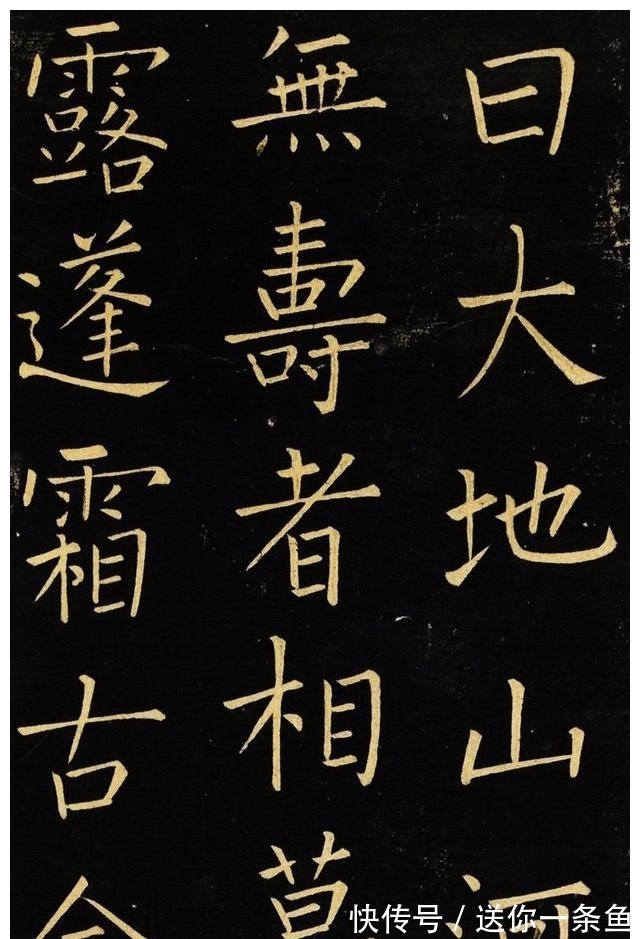 曰大地山河
無壽者相莫
露蓬霜古今
快传号 / 送你一条鱼